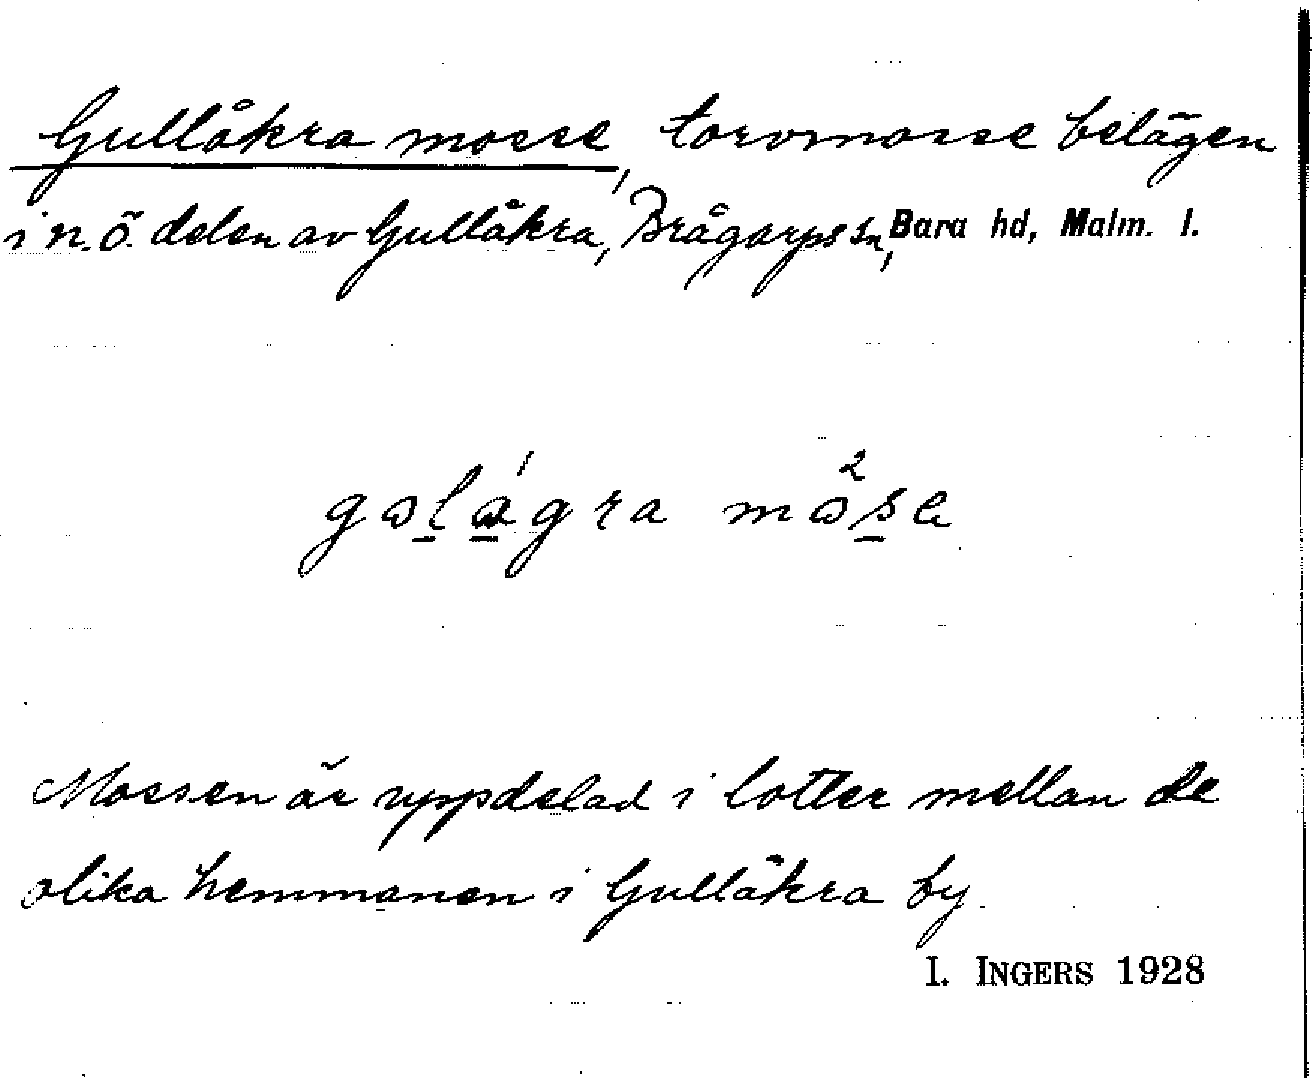 Gullåkra mosse, torvmosse belägen
i n.ö. delen av Gullåkra, Brågarps sn, Bara hd, Malm. l.
Mossen är uppdelad i lotter mellan de
olika hemmanen i Gullåkra by.
I. INGERS 1928